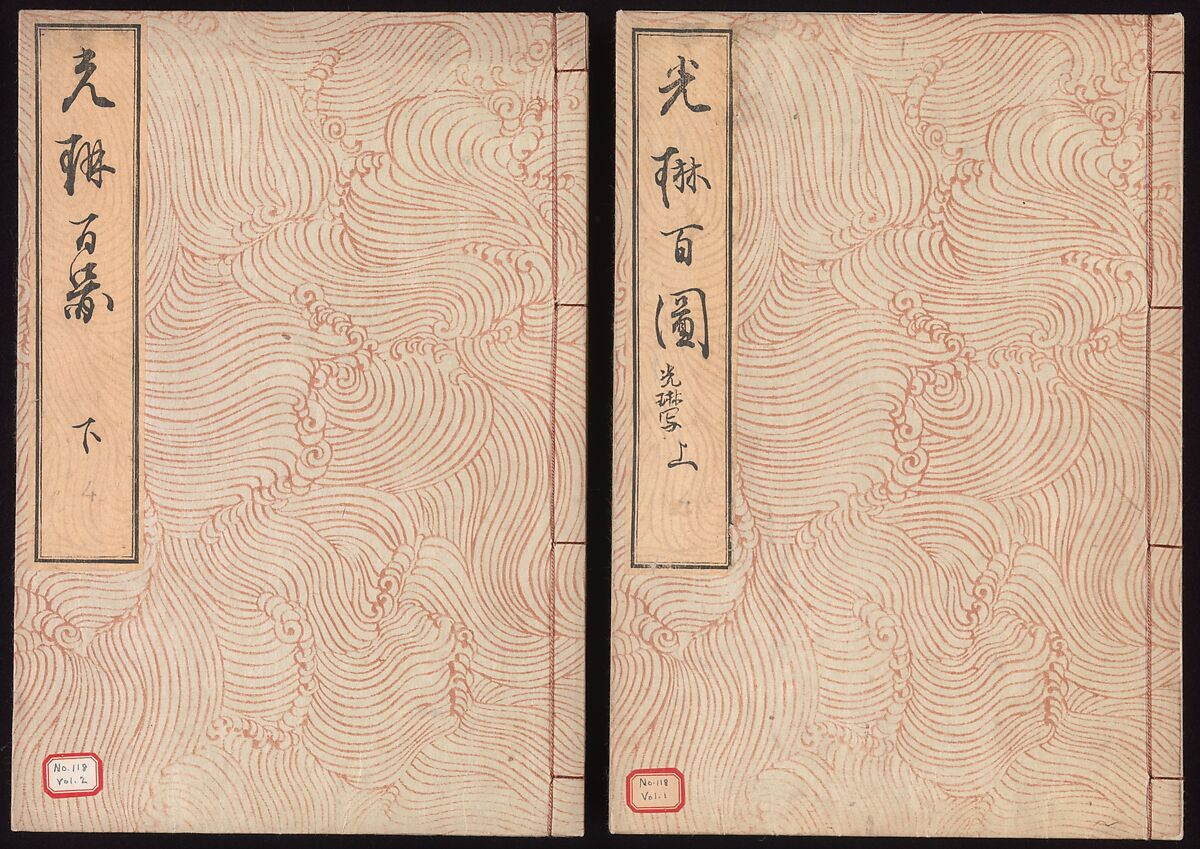 光琳百圖
光琳写
上
No.118
Vol.1
光琳百
下
4
No.118
Vol.2